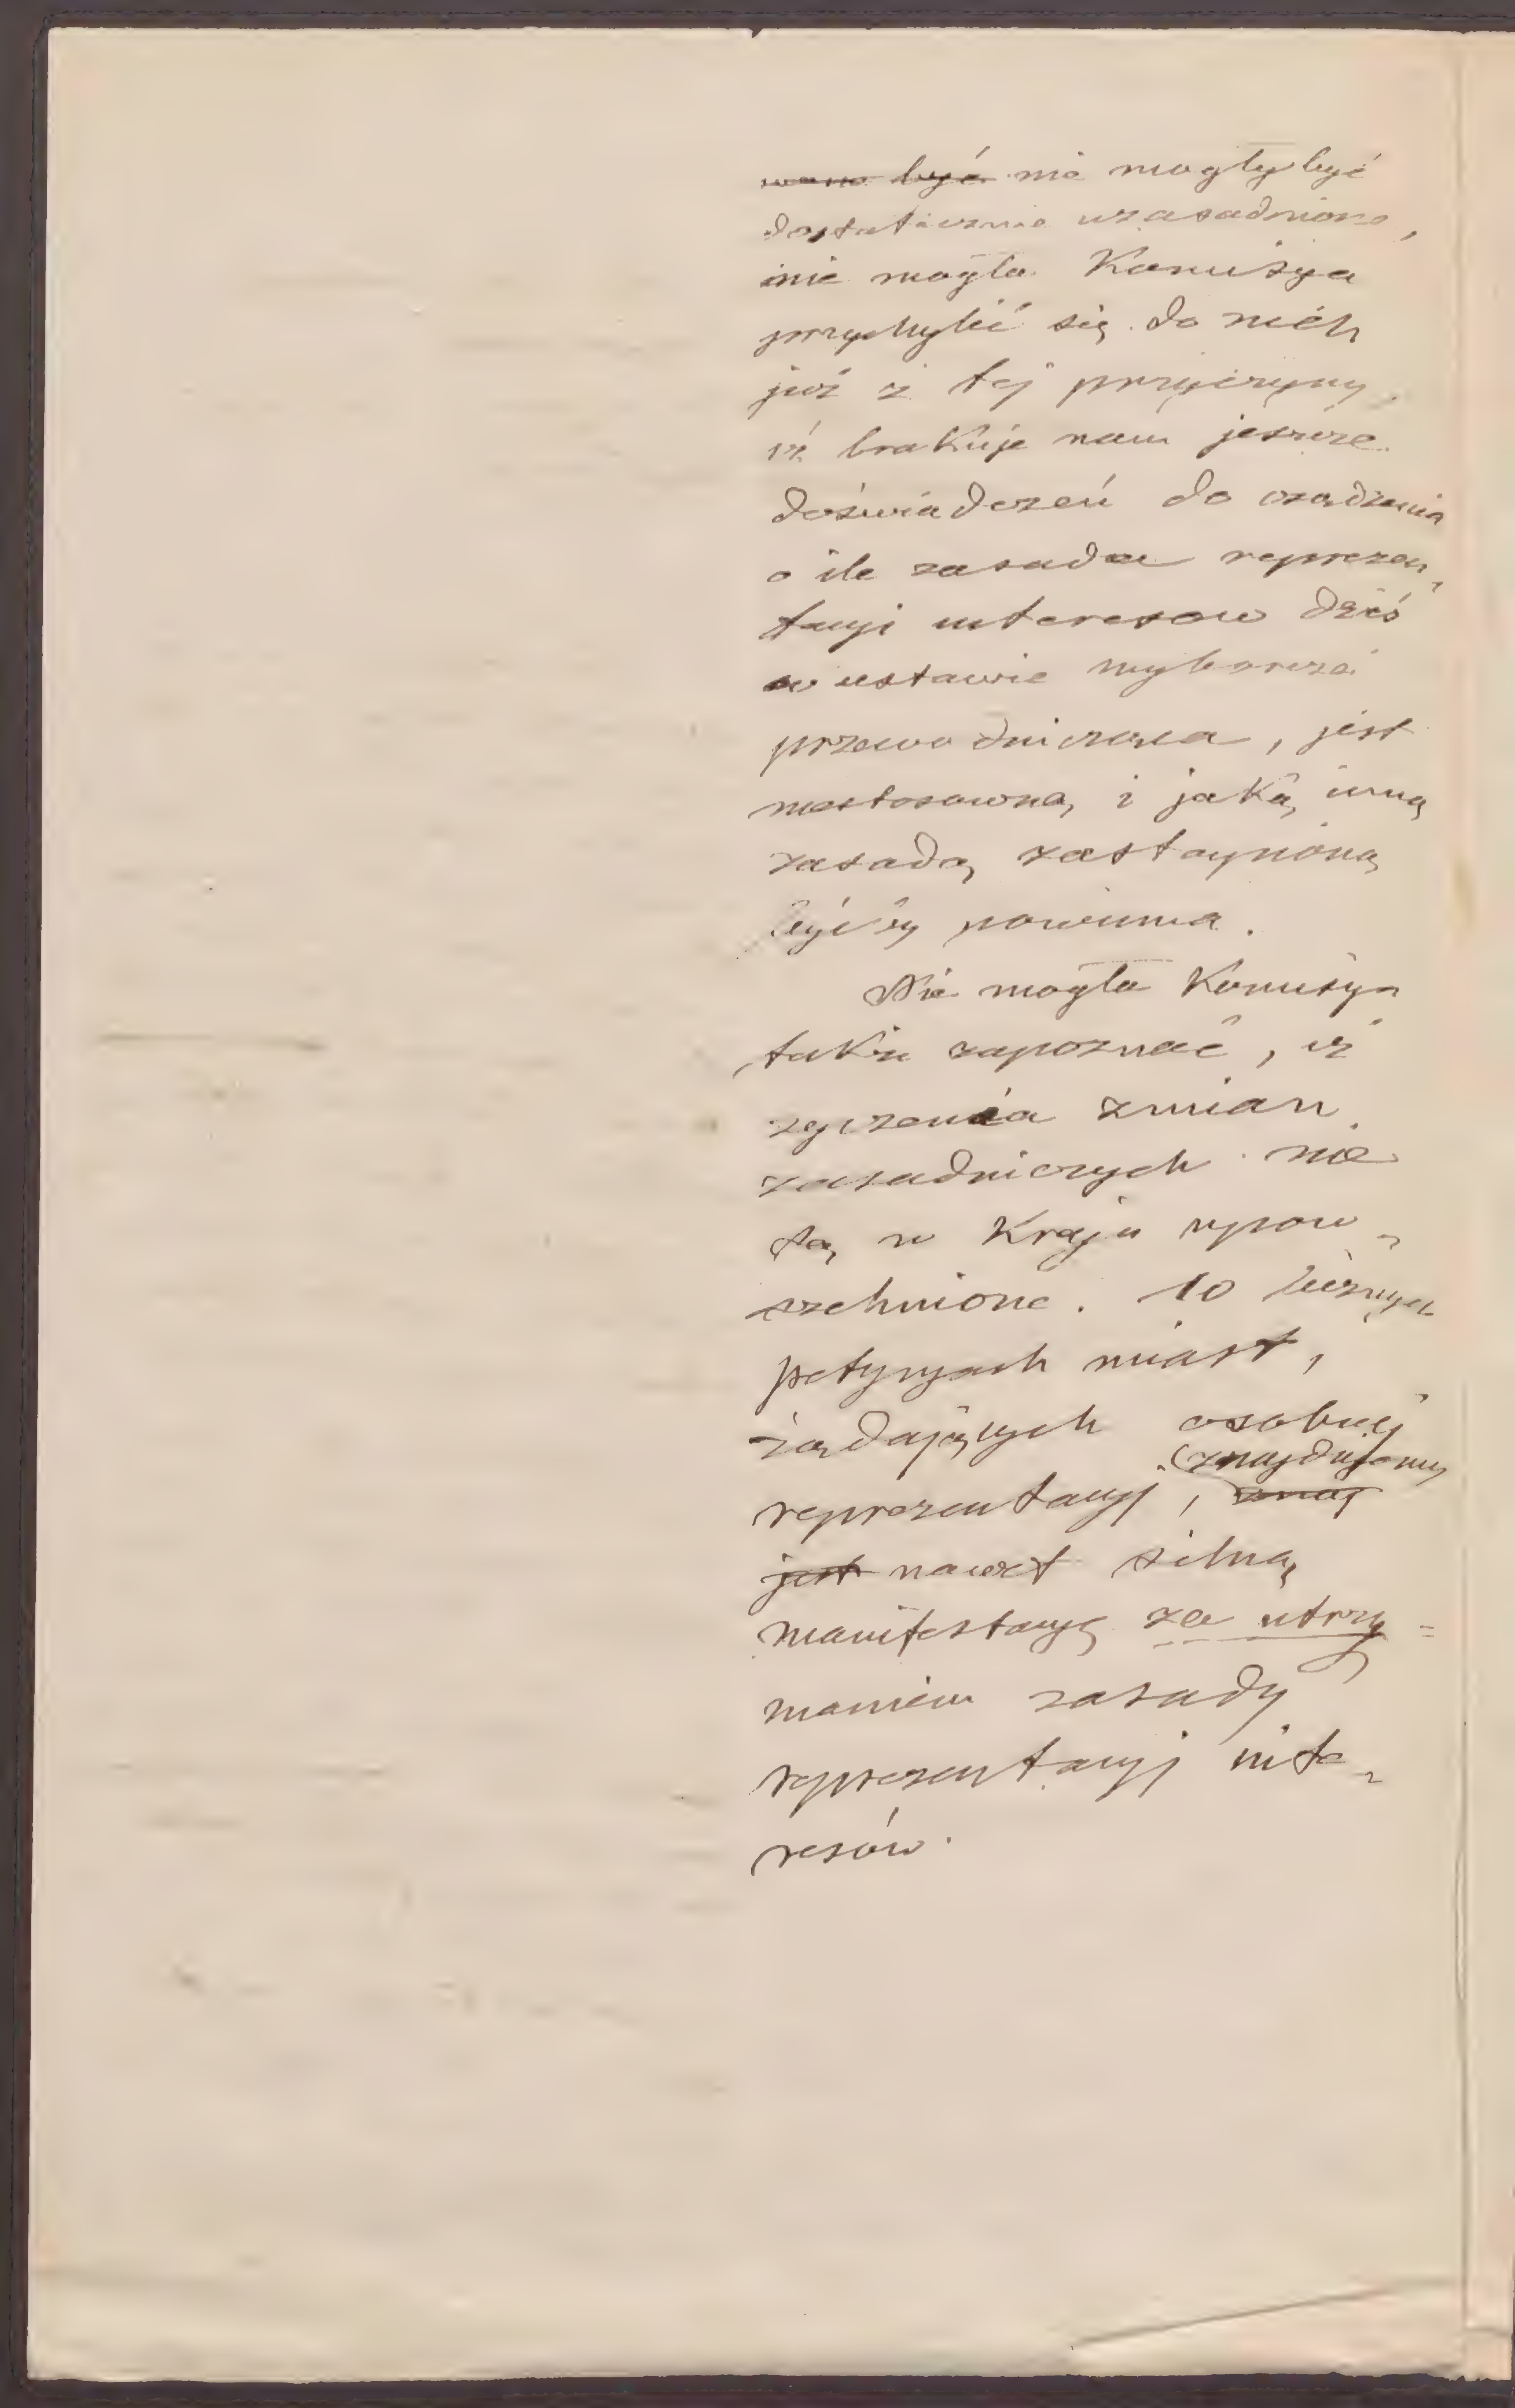 wane być nie mogły być
dostatecznie uzasadnione,
nie mogła Komisya
przychylić się do nich
już z tej przyczyny,
iż brakuje nam jeszcze
doświadczeń do osądzenia
o ile zasada reprezen-
tacyi interesow dziś
w ustawie wyborczéj
przewodnicząca, jest
niestosowną, i jaką inną
zasadą zastąpioną
byćby powinna.
Nie mogła Komisya
także zapoznać, iż
życzenia zmian
zasadniczych nie
są w Kraju upow-
szechnione. W licznych
petycyach miast,
żądających osobnéj
znajdujemy
reprezentacyi, znaj
jest nawet silną
manifestacyę za utrzy=
maniem zasady
reprezentacyi inte-
resów.